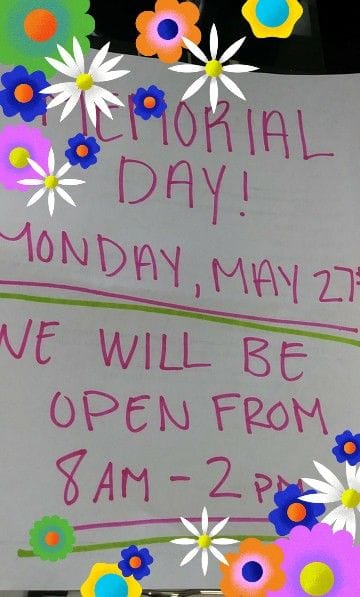 MEMORIAL
DAY!
MONDAY, MAY 27th
WE WILL BE
OPEN FROM
8 AM - 2 PM